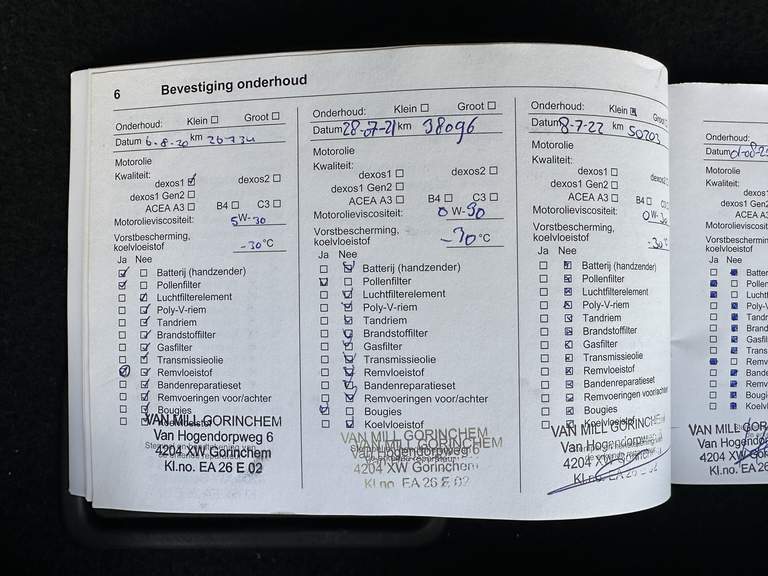 6 Bevestiging onderhoud
Onderhoud: Klein Groot
Datum 6-8-20 km 26734
Motorolie
Kwaliteit:
dexos1 dexos2
dexos1 Gen2
ACEA A3 B4 C3
Motorolieviscositeit:
5W-30
Vorstbescherming,
koelvloeistof -30 °C
Ja Nee
Batterij (handzender)
Pollenfilter
Luchtfilterelement
Poly-V-riem
Tandriem
Brandstoffilter
Gasfilter
Transmissieolie
Remvloeistof
Bandenreparatieset
Remvoeringen voor/achter
Bougies
VAN MILL GORINCHEM
Van Hogendorpweg 6
4204 XW Gorinchem
Kl.no. EA 26 E 02
Onderhoud: Klein Groot
Datum 28-07-21 km 38096
Motorolie
Kwaliteit:
dexos1 dexos2
dexos1 Gen2
ACEA A3 B4 C3
Motorolieviscositeit:
0 W-30
Vorstbescherming,
koelvloeistof -30 °C
Ja Nee
Batterij (handzender)
Pollenfilter
Luchtfilterelement
Poly-V-riem
Tandriem
Brandstoffilter
Gasfilter
Transmissieolie
Remvloeistof
Bandenreparatieset
Remvoeringen voor/achter
Bougies
Koelvloeistof
VAN MILL GORINCHEM
Van Hogendorpweg 6
4204 XW Gorinchem
Kl.no. EA 26 E 02
Onderhoud: Klein Groo
Datum 8-7-22 km 50203
Motorolie
Kwaliteit:
dexos1 dexos
dexos1 Gen2
ACEA A3 B4 C
Motorolieviscositeit:
0W-30
Vorstbescherming,
koelvloeistof -30°C
Ja Nee
Batterij (handzender)
Pollenfilter
Luchtfilterelement
Poly-V-riem
Tandriem
Brandstoffilter
Gasfilter
Transmissieolie
Remvloeistof
Bandenreparatieset
Remvoeringen voor/achter
Bougies
Koelvloeistof
VAN MILL GORINCHEM
Van Hogendorpweg
4204 XW Gorinchem
Onderhoud:
Datum
Motorolie
Kwaliteit:
dexos1
dexos1 Gen
ACEA A
Motorolieviscosit
Vorstbeschermin
koelvloeistof
Ja Nee
Batter
Pollen
Lucht
Poly-V
Tandr
Brand
Gasfil
Trans
Remv
Bande
Remv
Bougi
Koelv
VAN MILL GOR
Van Hogendo
4204 XW Go
Kl.no. EA 2